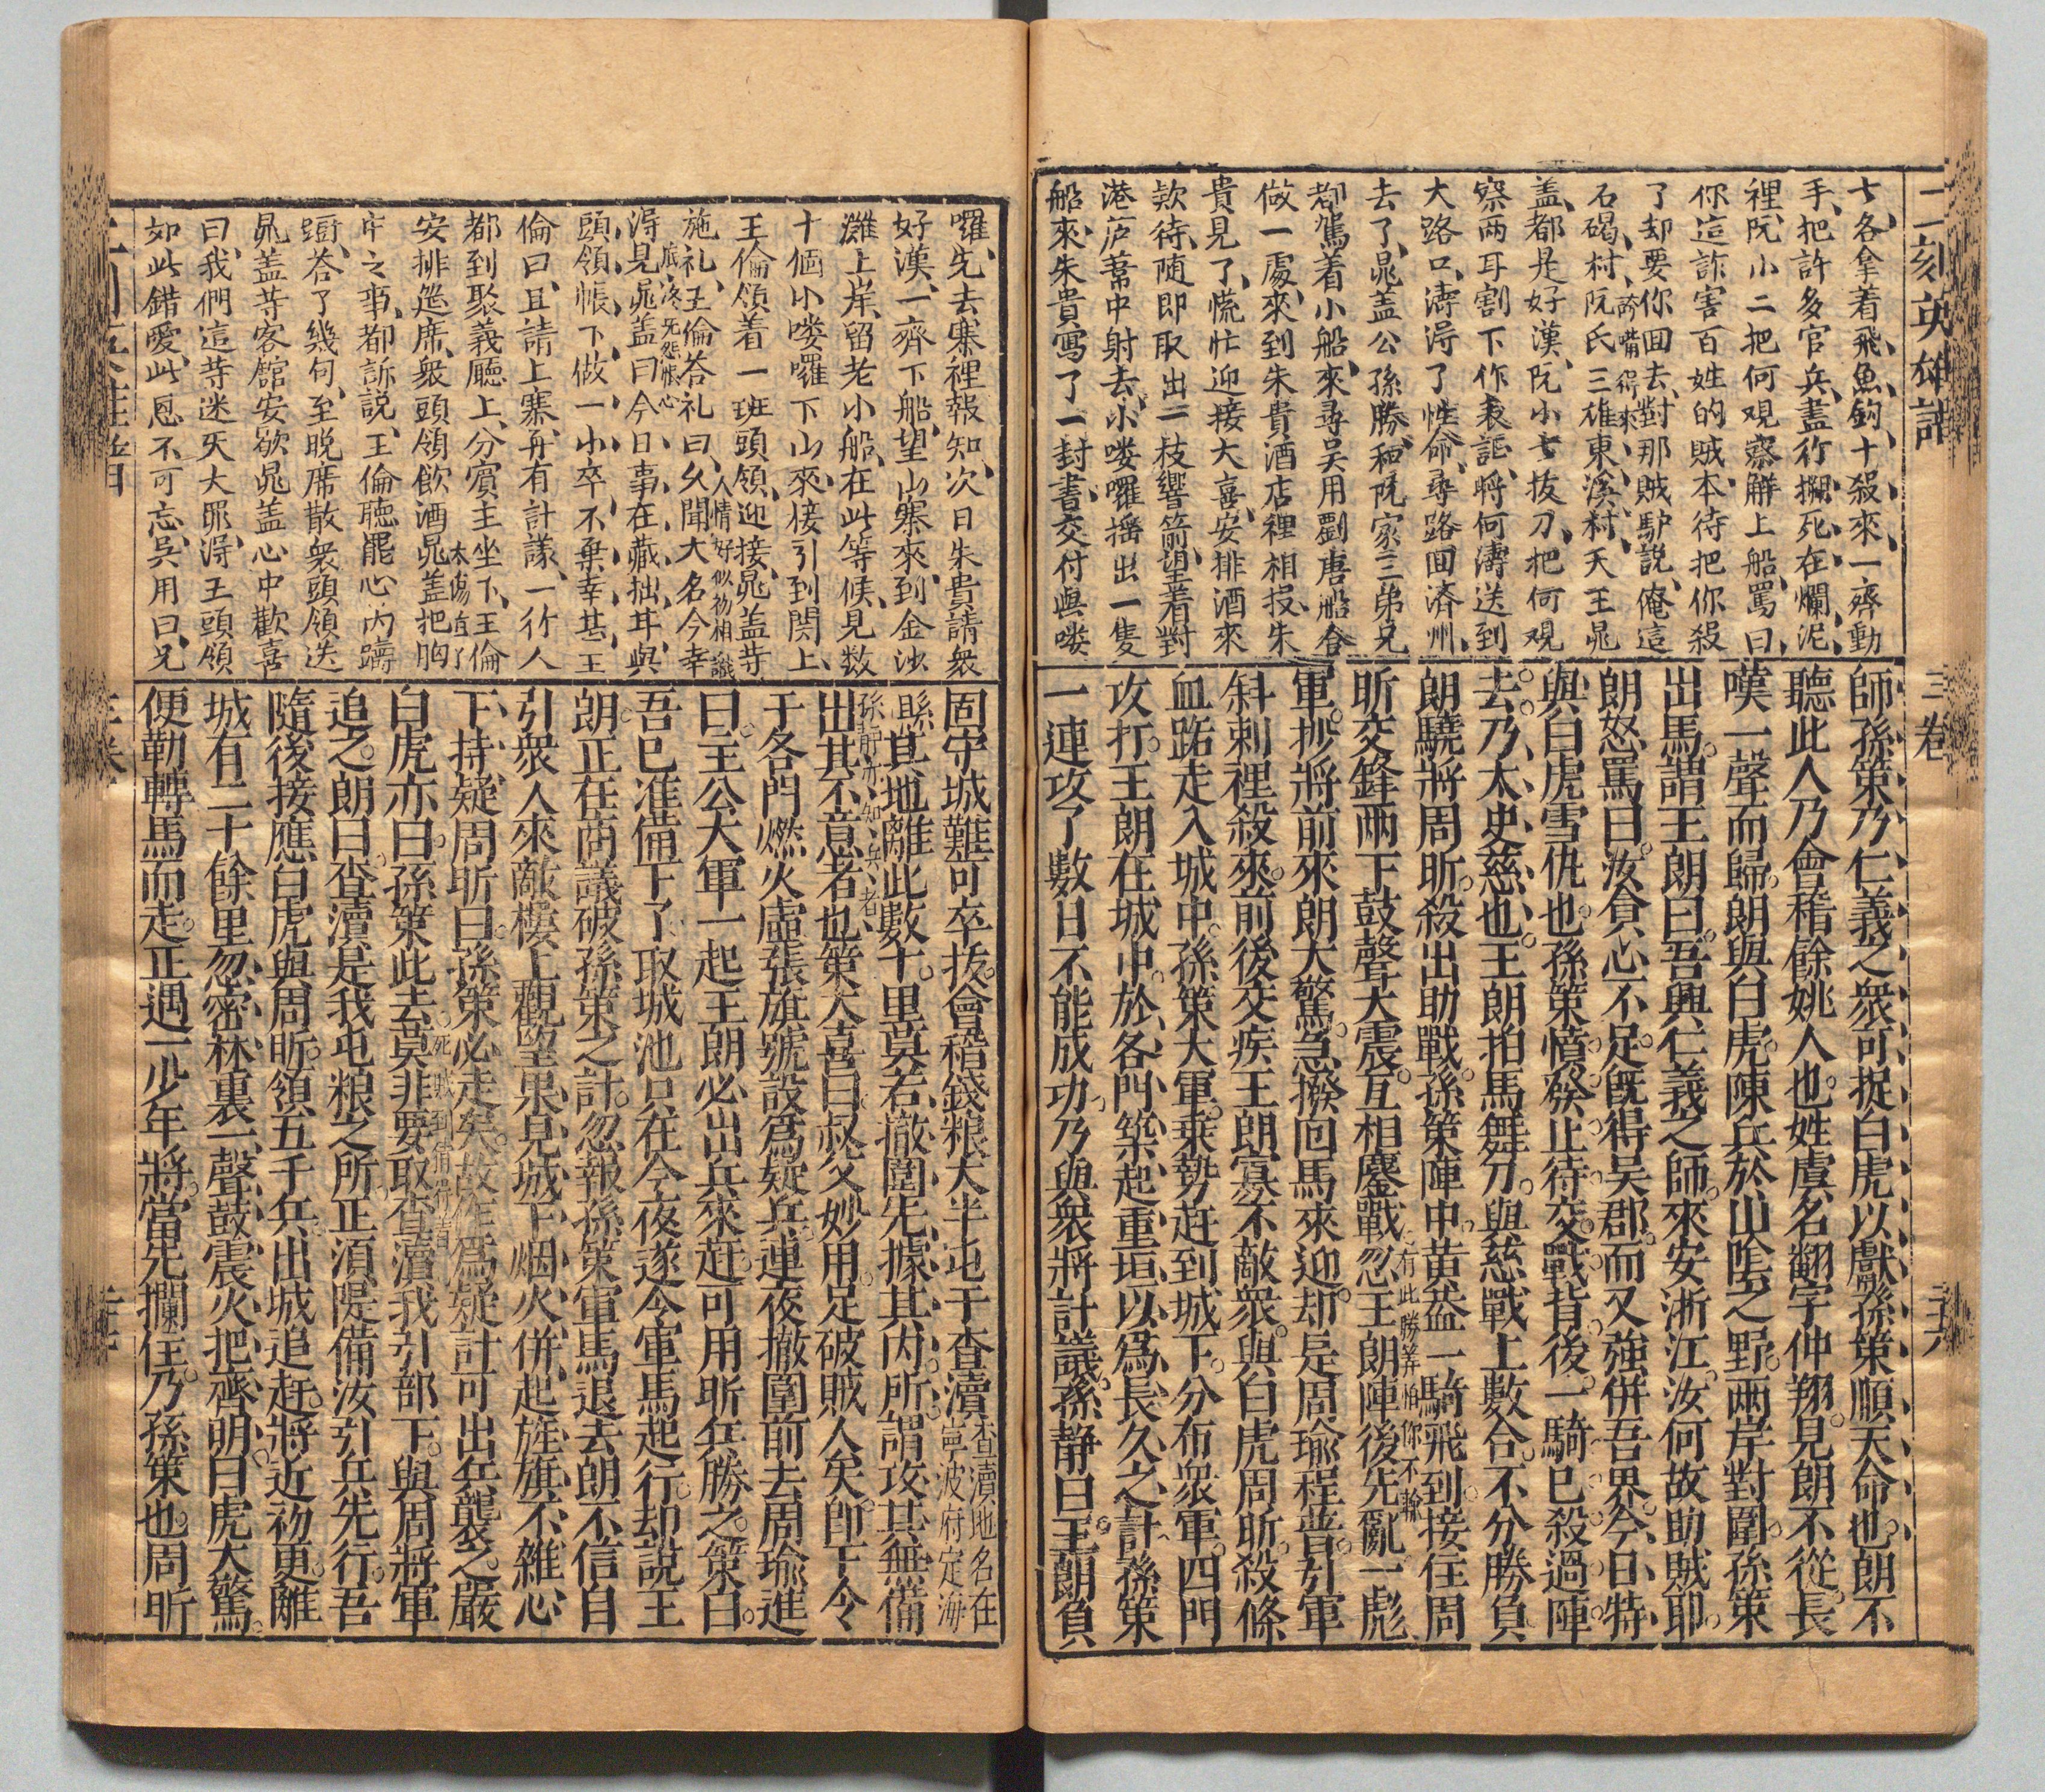 二刻英雄譜 三卷
七各拿着飛魚鈎十殺來一齊動
手把許多官兵盡行搠死在爛泥
裡阮小二把何观察觧上船罵曰
你這詐害百姓的賊本待把你殺
了却要你回去對那賊驴說俺這
誇嘴得來
石碣村阮氏三雄東溪村天王晁
盖都是好漢阮小七抜刀把何观
察两耳割下作表証将何濤送到
大路口濤淂了性命尋路回済州
去了晁盖公孫勝和阮家三弟兄
都駕着小船來尋吴用劉唐船合
做一處來到朱貴酒店裡相投朱
貴見了慌忙迎接大喜安排酒來
款待随即取出一枝響箭望着對
港芦葦中射去小喽囉揺出一隻
船來朱貴寫了一封書交付與喽
師孫策乃仁義之衆可捉白虎以獻孫策順天命也朗不
聽此人乃會稽餘姚人也姓虞名翻字仲翔見朗不從長
嘆一聲而歸朗與白虎陳兵於山隂之野兩岸對圍孫策
出馬謂王朗曰吾興仁義之師來安浙江汝何故助賊耶
朗怒罵曰汝貪心不足旣得吴郡而又強併吾界今日特
與白虎雪仇也孫策憤發止待交戰背後一騎已殺過陣
去乃太史慈也王朗拍馬舞刀與慈戰上數合不分勝負
朗驍將周昕殺出助戰孫策陣中黄盖一騎飛到接住周
有此勝筭怕你不輸
昕交鋒兩下鼓聲大震互相鏖戰忽王朗陣後先亂一彪
軍抄將前來朗大驚急撥囘馬來迎却是周瑜程普引軍
斜刺裡殺來前後交疾王朗寡不敵衆與白虎周昕殺條
血路走入城中孫策大軍乗勢赶到城下分布衆軍四門
攻打王朗在城中於各門築起重垣以爲長久之計孫策
一連攻了數日不能成功乃與衆將計議孫静曰王朗負
囉先去寨裡報知次日朱貴請衆
好漢一齊下船望山寨來到金沙
灘上岸留老小船在此等候見数
十個小喽囉下山來接引到関上
王倫領着一班頭領迎接晁盖等
人情好似初相識
施礼王倫答礼曰久聞大名今幸
到底终无怨恨心
淂見晁盖曰今日事在藏拙耳與
頭領帳下做一小卒不棄幸甚王
倫曰且請上寨再有計議一行人
都到聚義廳上分賓主坐下王倫
太傷直了
安排筵席衆頭領飲酒晁盖把胸
中之事都訴説王倫聴罷心内躊
躇答了幾句至晚席散衆頭領送
晁盖等客館安歇晁盖心中歡喜
曰我們這等迷天大罪淂王頭領
如此錯愛此恩不可忘吴用曰兄
固守城難可卒拔會稽錢粮大半屯于查瀆
查瀆地名在寧波府定海
縣其地離此數十里莫若撤圍先據其内所謂攻其無備
孫静亦知兵者
出其不意者也策大喜曰叔父妙用足破賊人矣即下令
于各門燃火虛張旗號設爲疑兵連夜撤圍前去周瑜進
曰主公大軍一起王朗必出兵來赶可用昕兵勝之策曰
吾已准備下了取城池只在今夜遂令軍馬起行却説王
朗正在商議破孫策之計忽報孫策軍馬退去朗不信自
引衆人來敵樓上觀望果見城下烟火併起旌旗不雜心
下持疑周昕曰孫策必走矣故作爲疑計可出兵襲之嚴
白虎亦曰孫策此去莫非要取查瀆我引部下與周將軍
追之朗曰查瀆是我屯粮之所正湏隄備汝引兵先行吾
隨後接應白虎與周昕領五千兵出城追赶將近初更離
城有二十餘里忽密林裏一聲鼓震火把齊明白虎大驚
便勒轉馬而走正遇一少年將當先攔住乃孫策也周昕